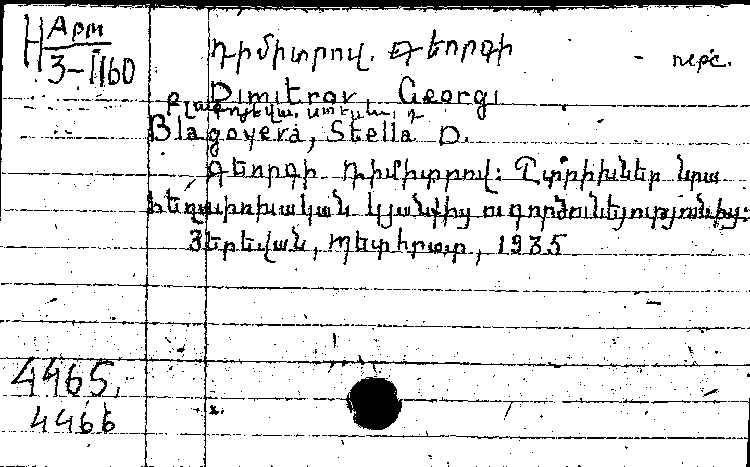 H Арт
3-II160
Դիմիտրով. Գեորգի
Dimitrov Georgi
Բլագոյեվա, Ստելլա, Դ
Blagoyeva, Stella D.
Գեորգի Դիմիտրով: Շտրիխներ նրա
հեղափոխական կյանքից ու գործունեյությունից:
Յերեվան, Պետհրատ, 1935
4465,
4466